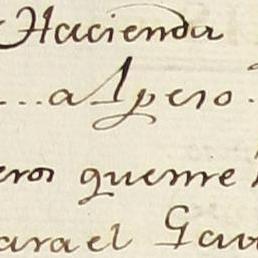 Hacienda
...a 1 peso.
eros que me
ara el Gav